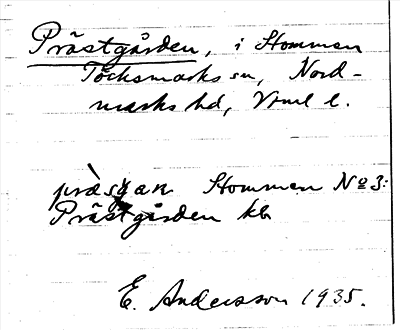 Prästgården, i Hommen
Töcksmarks sn, Nord-
marks hd, Vrml l.
præsgan Hommen No 3:
Prästgården kb
E. Andersson 1935.